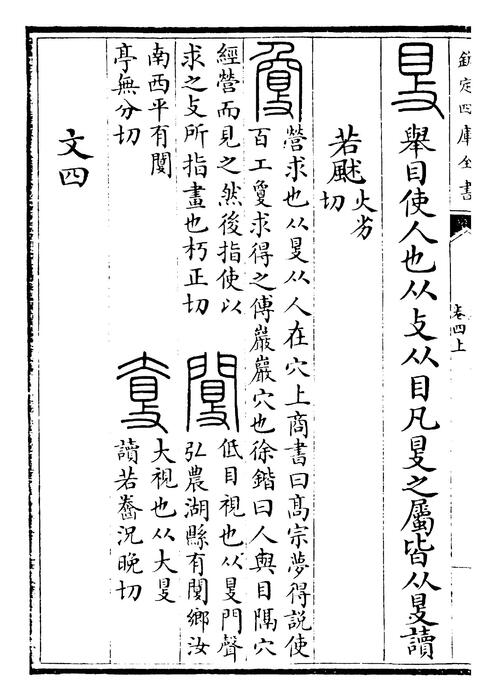 欽定四庫全書
卷四上
𥄎舉目使人也从攴从目凡𥄎之屬皆从𥄎讀
若䫻火劣
切
夐
營求也从𥄎从人在穴上商書曰髙宗夢得説使
百工夐求得之傅巖巖穴也徐鍇曰人與目隔穴
經營而見之然後指使以
求之攴所指畫也朽正切
閺
低目視也从𥄎門聲
弘農湖縣有閺鄉汝
南西平有閺
亭無分切
大視也从大𥄎
讀若齤況晚切
文四